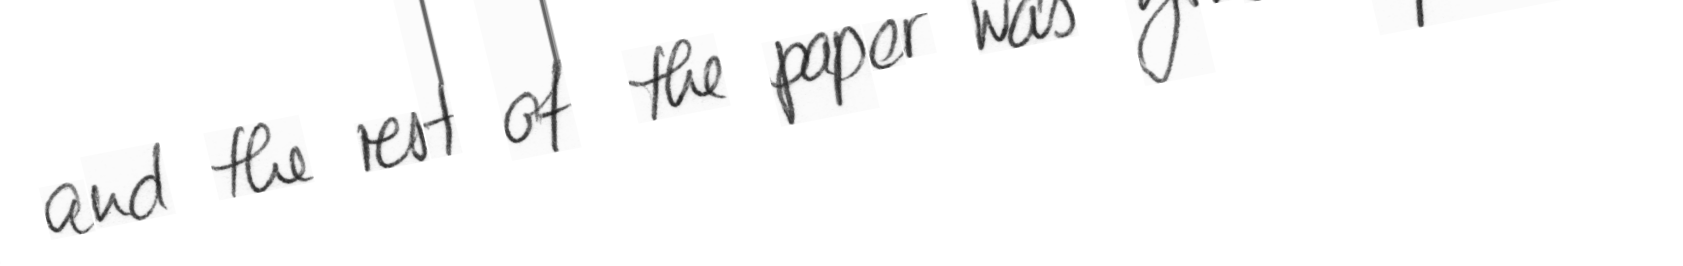 and the rest of the paper was